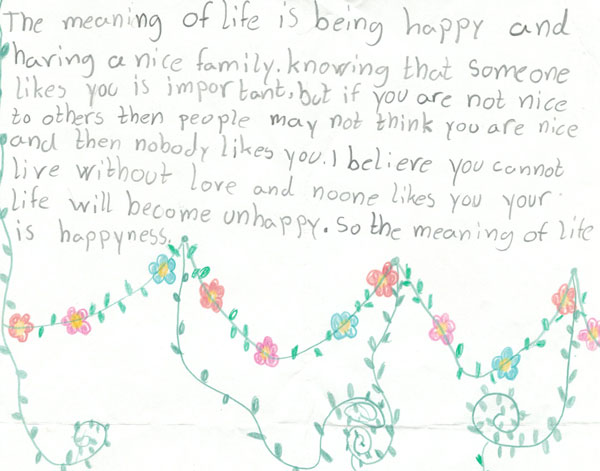 The meaning of life is being happy and
having a nice family. knowing that someone
likes you is important, but if you are not nice
to others then people may not think you are nice
and then nobody likes you. I believe you cannot
live without love and noone likes you your
life will become unhappy. So the meaning of life
is happyness.